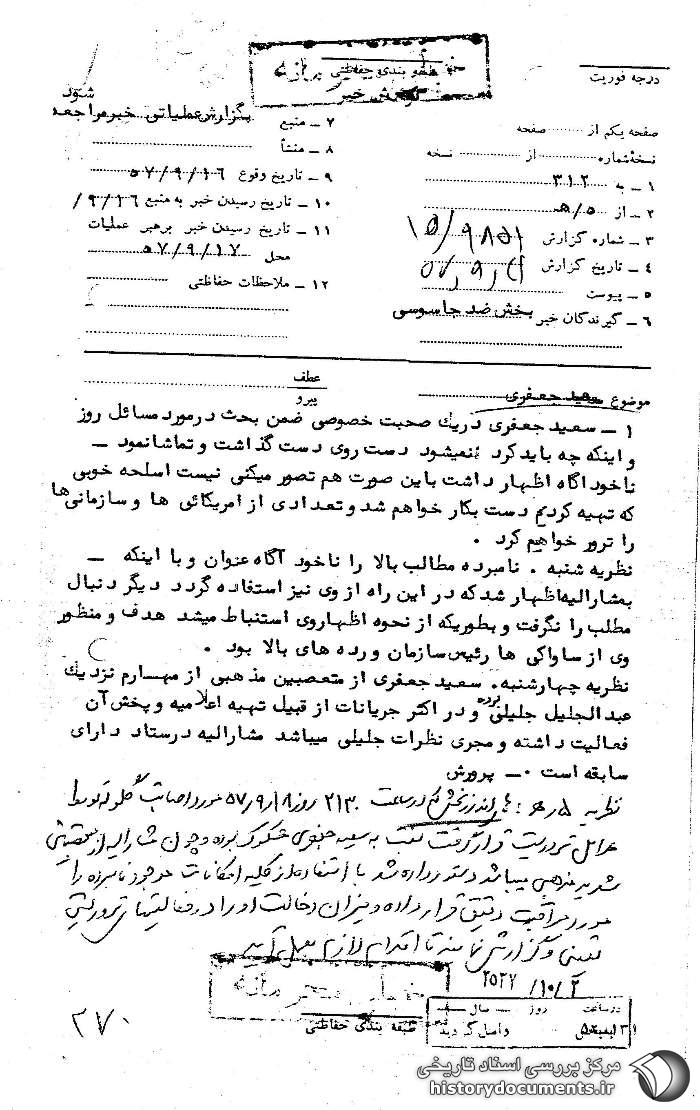 طبقه بندی حفاظتی
گزارش خبر
درجه فوریت
صفحه یکم از صفحه
نسخه شماره از نسخه
۱ ـ به ۳۱۲
۲ ـ از ۵/ﻫ
۳ ـ شماره گزارش ۱۵/۹۸۵۱
۴ ـ تاریخ گزارش
۵ ـ پیوست
۶ ـ گیرندگان خبر بخش ضد جاسوسی
شود
۷ ـ منبع بگزارش عملیاتی خبر مراجعه
۸ ـ منشأ
۹ ـ تاریخ وقوع ۵۷/۹/۱۶
۱۰ ـ تاریخ رسیدن خبر به منبع ۹/۱۶/
۱۱ ـ تاریخ رسیدن خبر برهبر عملیات
محل ۵۷/۹/۱۷
۱۲ ـ ملاحظات حفاظتی
موضوع سعید جعفری
عطف
پیرو
۱ ـ سعید جعفری در یک صحبت خصوصی ضمن بحث در مورد مسائل روز
و اینکه چه باید کرد نمیشود دست روی دست گذاشت و تماشا نمود ـ
ناخودآگاه اظهار داشت باین صورت هم تصور میکنی نیست اسلحه خوبی
که تهیه کردیم دست بکار خواهم شد و تعدادی از امریکائی ها و سازمانی ها
را ترور خواهیم کرد .
نظریه شنبه . نامبرده مطالب بالا را ناخود آگاه عنوان و با اینکه ـ
بمشارالیه اظهار شد که در این راه از وی نیز استفاده گردد دیگر دنبال
مطلب را نگرفت و بطوریکه از نحوه اظهار وی استنباط میشد هدف و منظور
وی از ساواکی ها رئیس سازمان و رده های بالا بود .
نظریه چهارشنبه. سعید جعفری از متعصبین مذهبی از مهره‌های نزدیک
عبدالجلیل جلیلی بوده و در اکثر جریانات از قبیل تهیه اعلامیه و پخش آن
فعالیت داشته و مجری نظرات جلیلی میباشد مشارالیه در ستاد دارای
سابقه است ۰ ـ پرورش
نظریه ۵/ﻫ : در ساعت ۲۱۳۰ روز ۵۷/۹/۱۸ مورد اصابت گلوله توسط
عوامل تروریست قرار گرفت نسبت به سعید جعفری مشکوک بوده و چون مشارالیه از متعصبین
شدید مذهبی میباشد دستور داده شد با استفاده از کلیه امکانات موجود نامبرده را
مورد مراقبت دقیق قرار داده و میزان دخالت او را در فعالیتهای تروریستی
تعیین و گزارش نمایند تا اقدام لازم بعمل آید
۲۵۳۷/۱۰/۲
طبقه بندی حفاظتی
در ساعت روز سال
واصل گردید
۲۷۰
مرکز بررسی اسناد تاریخی
historydocuments.ir